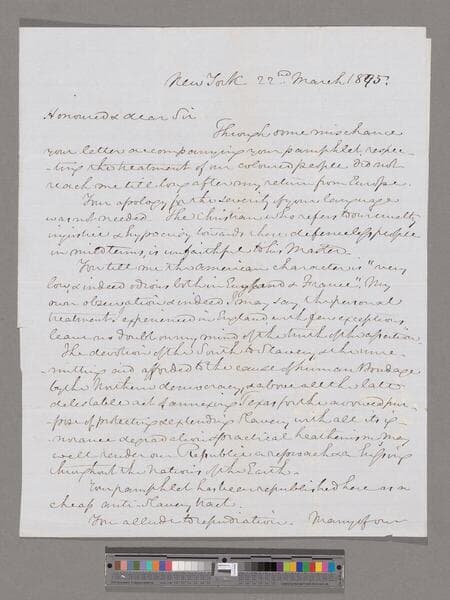 New York 22nd March 1845.
Honoured & dear Sir
Through some mischance
your letter accompanying your pamphlet respec-
-ting the treatment of our coloured people did not
reach me till long after my return from Europe.
Your apology for the severity of your language
was not needed. The Christian who refers to our cruelty
injustice & hypocrisy towards these defenceless people
in mild terms, is unfaithful to his Master.
You tell me the American character is "very
low & indeed odious both in England & France". My
own observation & indeed I may say the personal
treatment I experienced in England with few exceptions,
leaves no doubt on my mind of the truth of the assertion.
The devotion of the South to Slavery, & the unre-
-mitting aid afforded to the cause of human Bondage
by the Northern democracy, & above all the late
detestable act of annexing Texas for the avowed pur-
pose of protecting & extending Slavery with all its ig-
norance & degradation & practical heathenism, may
well render our Republic a reproach & a hissing
throughout the Nations of the Earth.
Your pamphlet has been republished here as a
cheap anti-slavery tract.
You allude to repudiation. Many of our